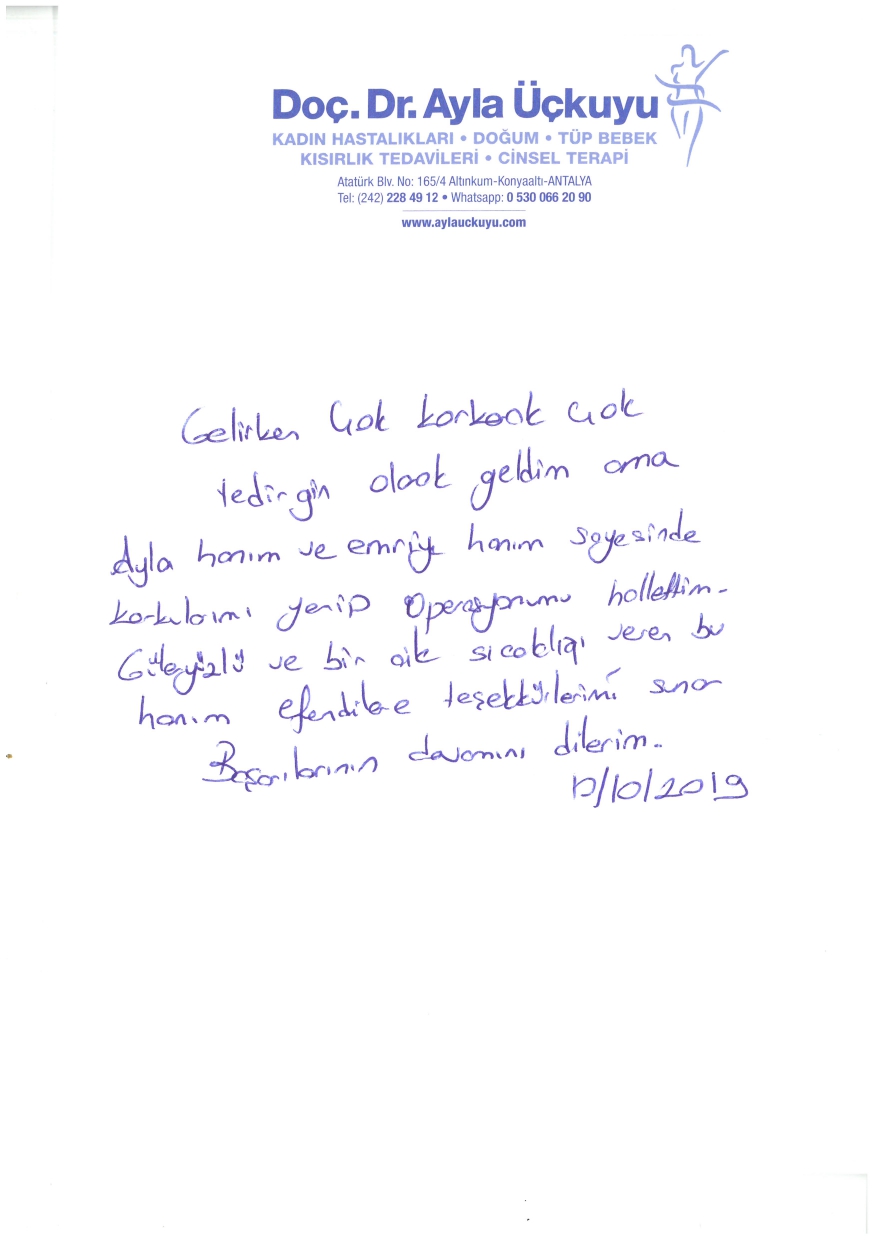 Doç. Dr. Ayla Üçkuyu
KADIN HASTALIKLARI • DOĞUM • TÜP BEBEK
KISIRLIK TEDAVİLERİ • CİNSEL TERAPİ
Atatürk Blv. No: 165/4 Altınkum-Konyaaltı-ANTALYA
Tel: (242) 228 49 12 • Whatsapp: 0 530 066 20 90
www.aylauckuyu.com
Gelirken Çok korkarak çok
tedirgin olarak geldim ama
Ayla hanım ve emriye hanım sayesinde
korkularımı yenip Operasyonumu hallettim.
Güleryüzlü ve bir aile sıcaklığı veren bu
hanım efendilere teşekkürlerimi sunar
Başarılarının devamını dilerim.
/10/2019